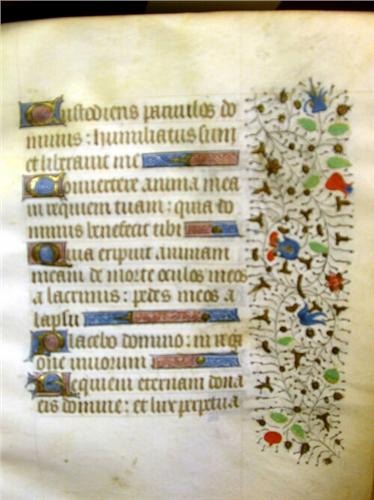 Custodiens paruulos do
minus: humiliatus sum
et liberauit me
Conuertere anima mea
in requiem tuam: quia do
minus benefecit tibi
Quia eripuit animam
meam de morte oculos meos
a lacrimis: pedes meos a
lapsu
Placebo domino: in regi
one uiuorum
Requiem eternam dona
eis domine: et lux perpetua